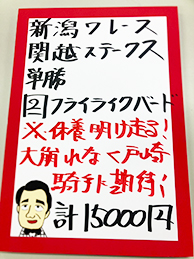 新潟ワレース
関越ステークス
単勝
2フライライクバード
※休養明け走る!
大崩れなく戸崎
騎手に期待!
計15000円